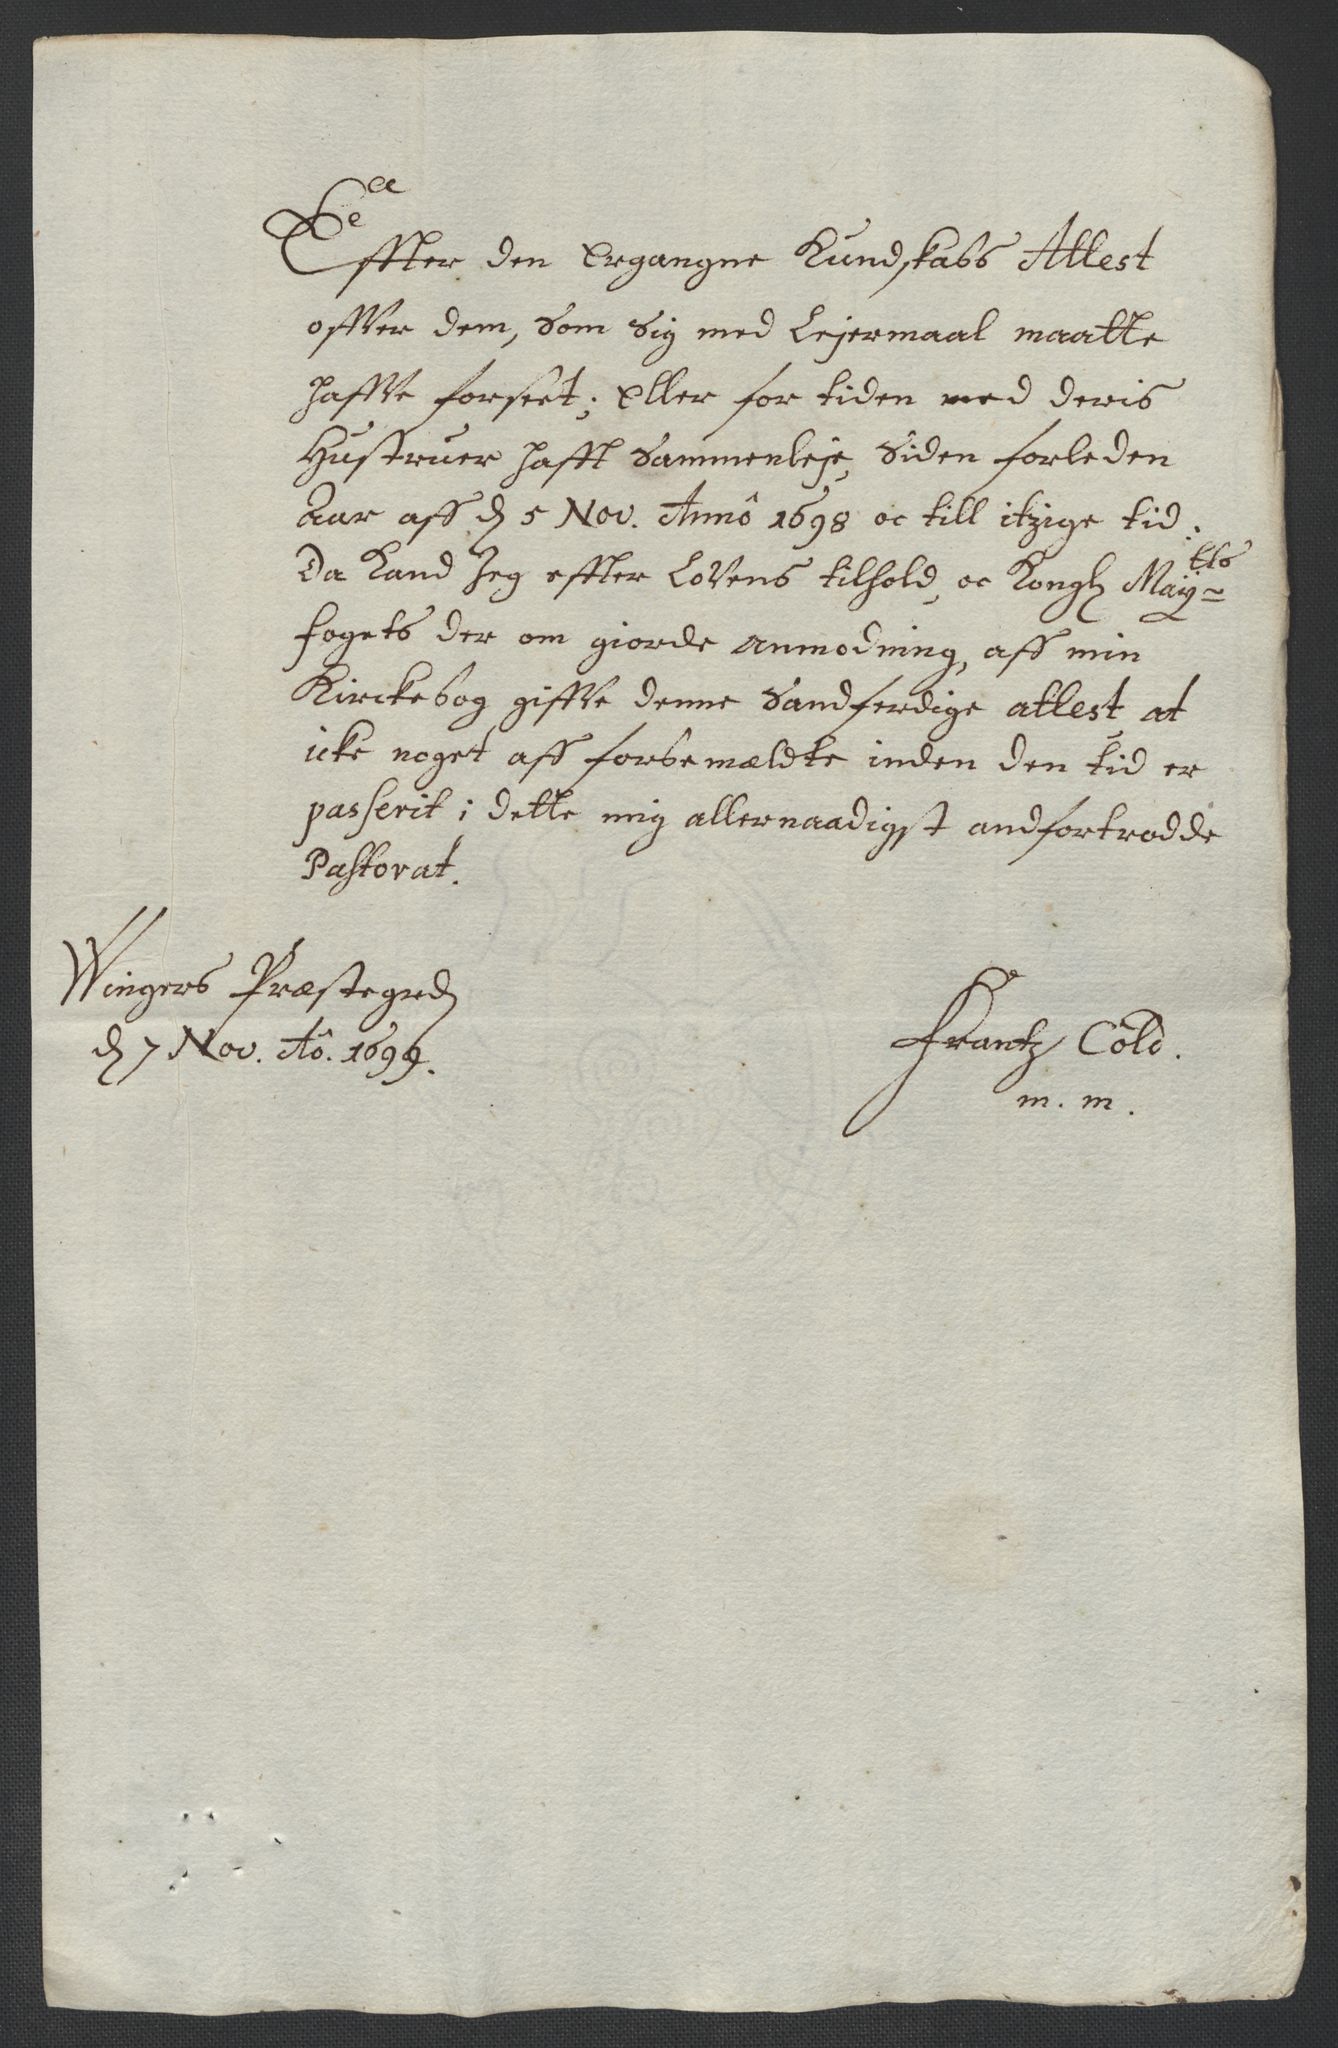 Effter den Ergangne Kundskabs Attest
offver dem, Som Sig med Lejermaal maatte
haffve forseet; Eller for tiden med deris
Hustruer hafft Sammenleje, Siden forleden
Aar aff d 5 Nov. Annô 1698 oc till itzige tid:
Da Kand Jeg effter Lovens tilhold, oc Kongl May=tts
fogets der om giorde Anmodning, aff min
Kirckebog giffve denne Sandferdige attest at
icke noget aff forbemældte inden den tid er
passerit i dette mig allernaadigst andfortrodde
Pastorat.
Wingers Præstegrd
d 7 Nov. Aô. 1699.
Frantz Cold.
m. m.